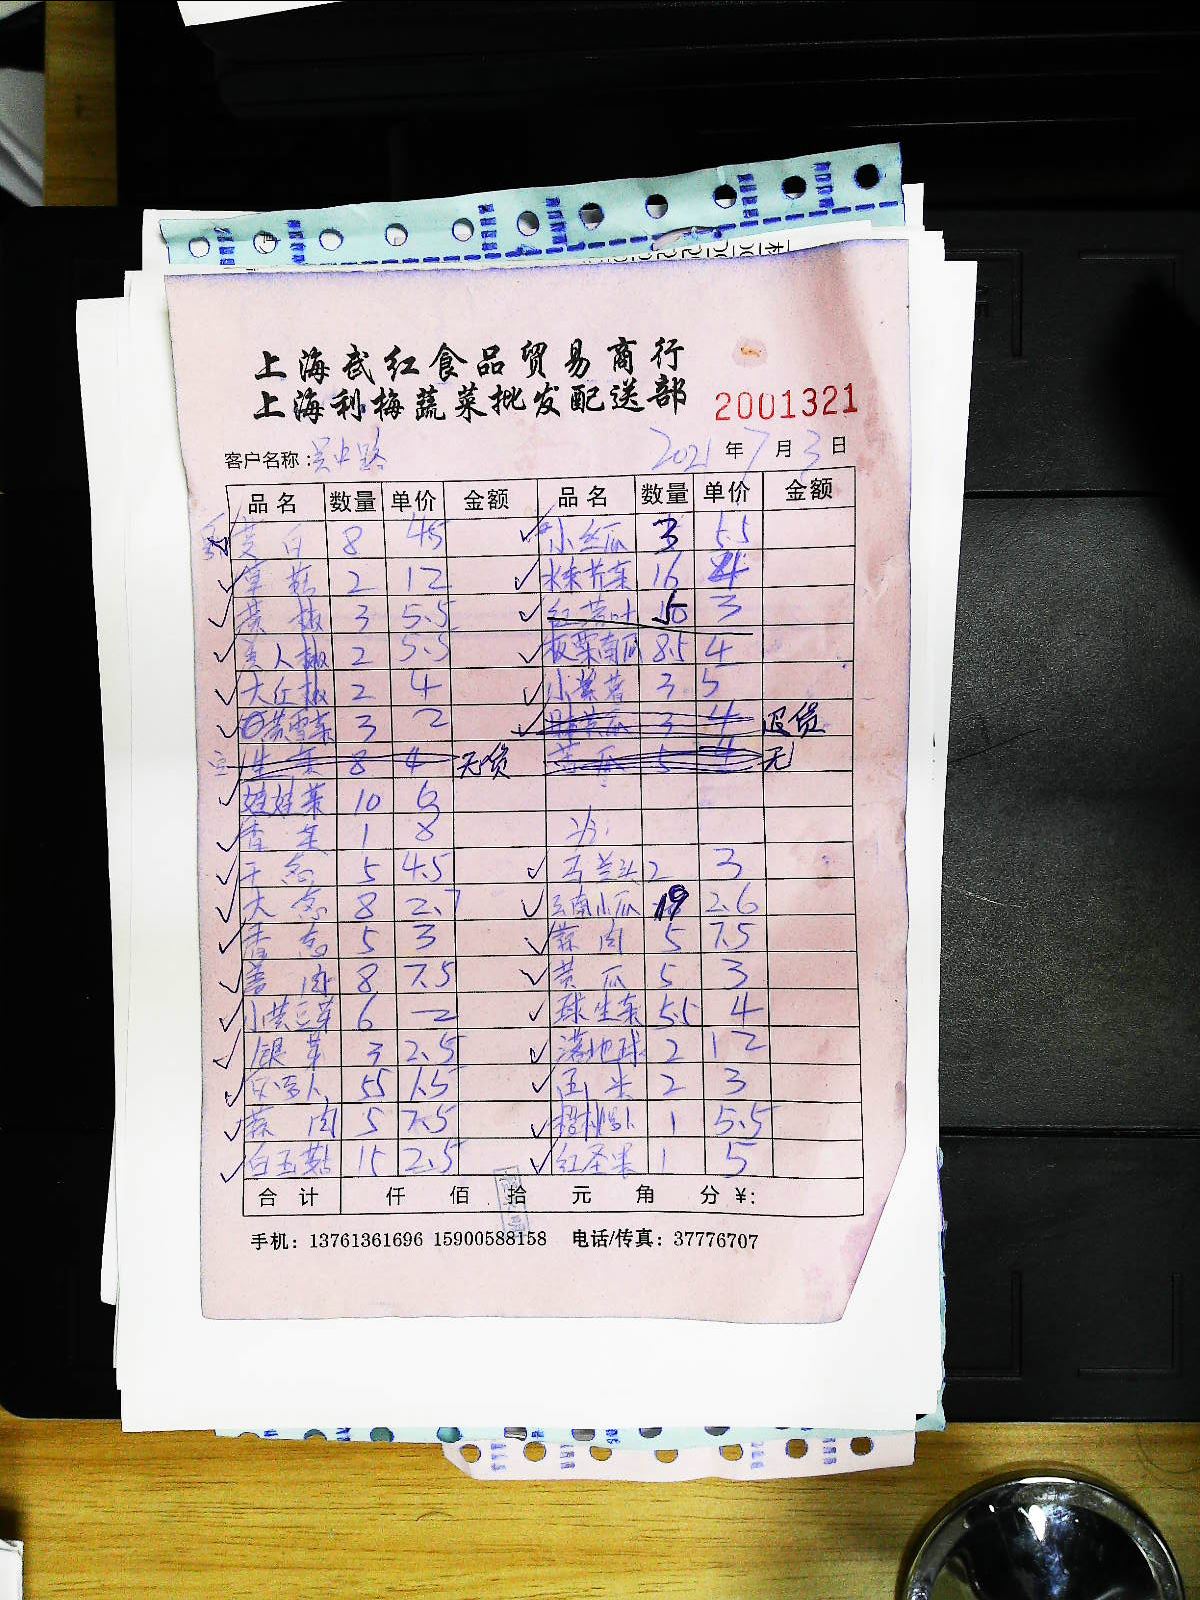 上海武红食品贸易商行
上海利梅蔬菜批发配送部
2001321
客户名称: 吴中路 2021年7月3日
品名 数量 单价 金额 品名 数量 单价 金额
茭白 8 45 小丝瓜 3 5.5
草菇 2 12 16 4
黄椒 3 5.5 红苋叶 3
美人椒 2 5.5 板栗南瓜 8.5 4
大红椒 2 4 小紫薯 3 5
3 2 黄瓜 3 4 退货
生菜 8 4 无货 苦瓜 5 4 无
娃娃菜 10 6
香菜 1 8
干葱 5 4.5 马兰头 2 3
大葱 8 2.7 云南小瓜 19 2.6
香葱 5 3 蒜肉 5 7.5
姜肉 8 7.5 黄瓜 5 3
小黄豆芽 6 2 球生菜 5.5 4
银芽 3 2.5 满地球 2 12
55 1.5 玉米 2 3
蒜肉 5 7.5 1 5.5
白玉菇 15 2.5 红圣果 1 5
合计 仟 佰 拾 元 角 分 ¥:
手机: 13761361696 15900588158 电话/传真: 37776707